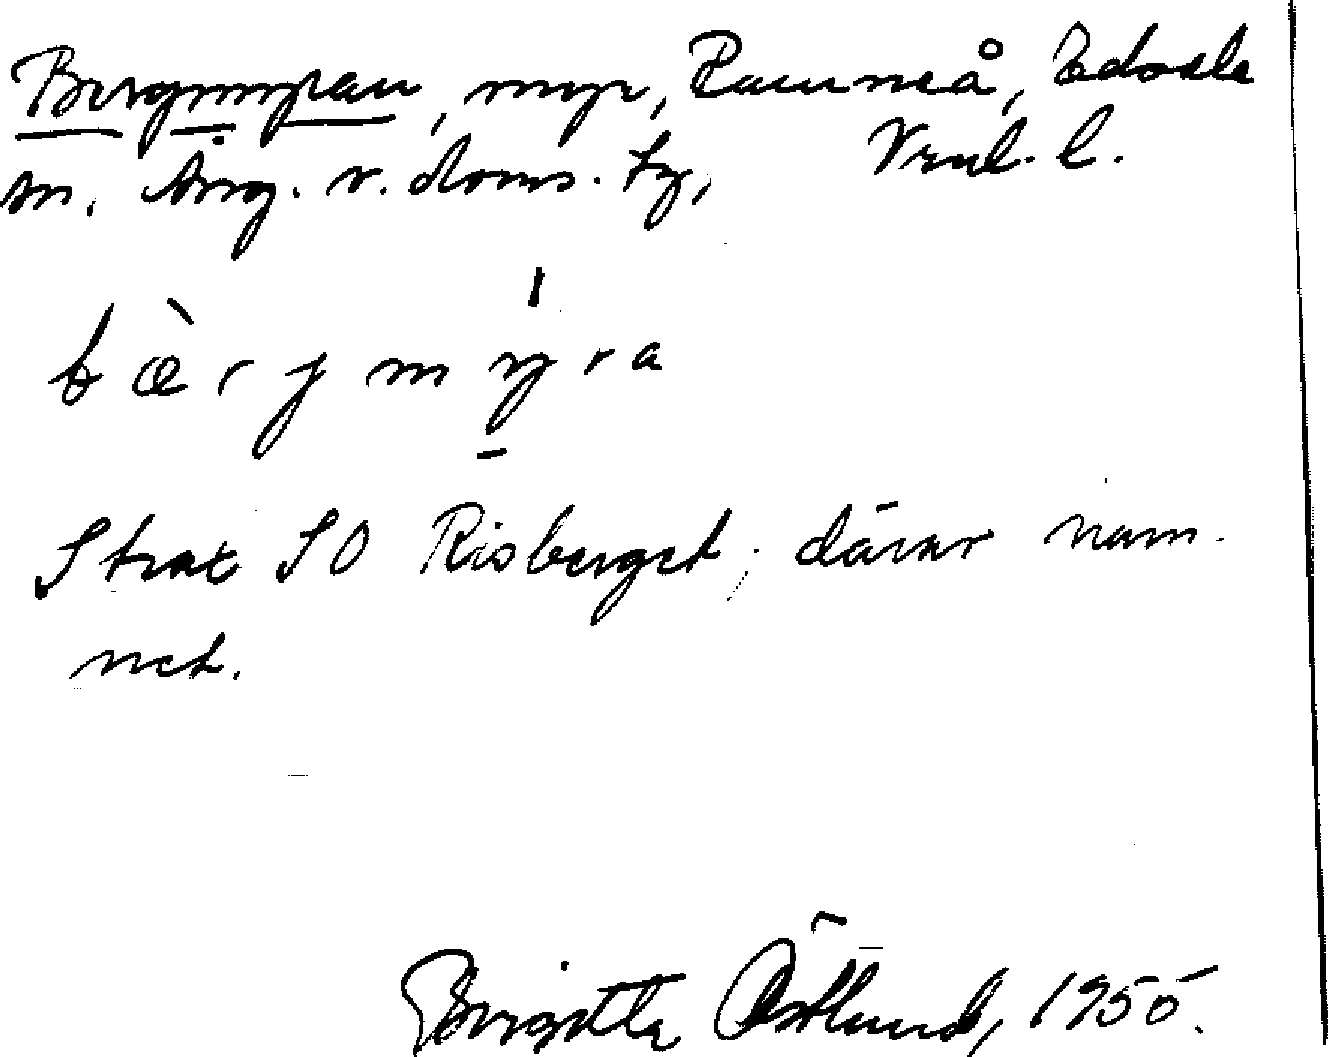 Bergmyran, myr, Ramneå, Edsele
m. Ång. v. doms. tg, Vml. l.
b æ̀ r j m ý̱ r a
Strax SO Risberget; därav nam-
net.
Birgitta Östlund, 1955.